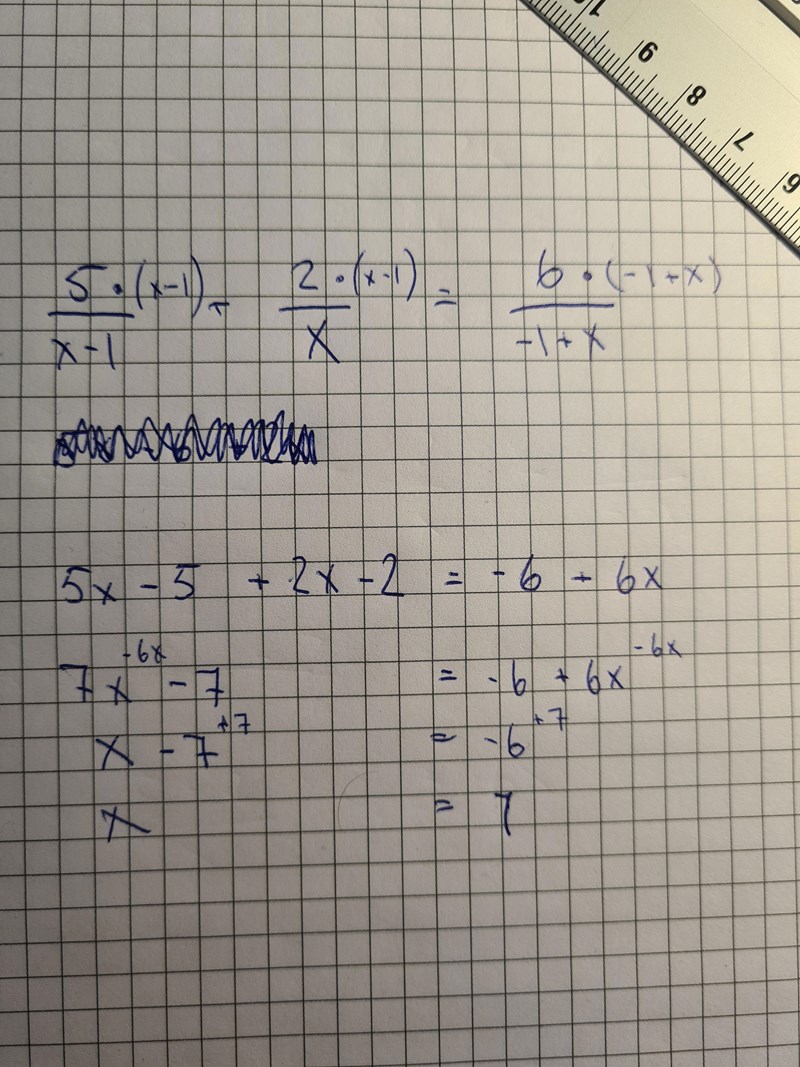 10 9 8 7 6
5 · (x-1) + 2 · (x-1) = 6 · (-1+x)
x-1 x -1+x
5x - 5 + 2x - 2 = -6 + 6x
7x -6x - 7 = -6 + 6x -6x
x - 7 +7 = -6 +7
x = 1